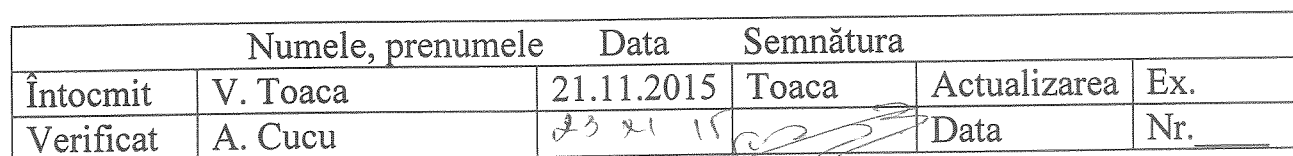 Numele, prenumele Data Semnătura
Întocmit V. Toaca 21.11.2015 Toaca Actualizarea Ex.
Verificat A. Cucu 23 XI 15 Data Nr.____